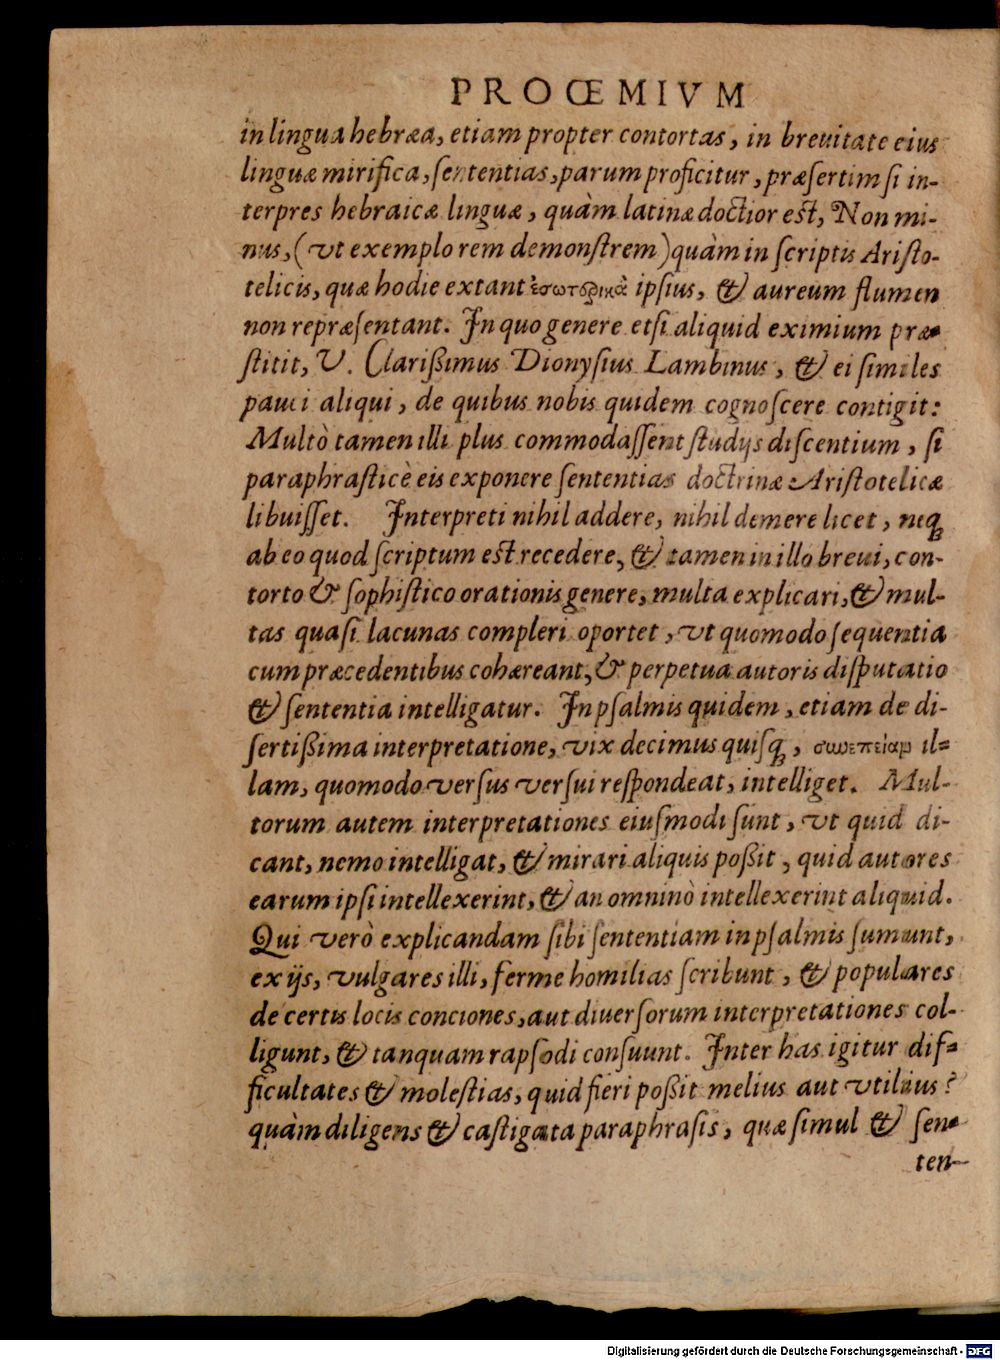 PROŒMIVM
in lingua hebræa, etiam propter contortas, in breuitate eius
linguæ mirifica, sententias, parum proficitur, præsertim si in-
terpres hebraicæ linguæ, quàm latinæ doctior est, Non mi-
nus, (vt exemplo rem demonstrem) quàm in scriptis Aristo-
telicis, quæ hodie extant ἐσωτερικὰ ipsius, & aureum flumen
non repræsentant. In quo genere etsi aliquid eximium præ-
stitit, V. Clarißimus Dionysius Lambinus, & ei similes
pauci aliqui, de quibus nobis quidem cognoscere contigit:
Multò tamen illi plus commodassent studijs discentium, si
paraphrasticè eis exponere sententias doctrinæ Aristotelicæ
libuisset. Interpreti nihil addere, nihil demere licet, neq́
ab eo quod scriptum est recedere, & tamen in illo breui, con-
torto & sophistico orationis genere, multa explicari, & mul-
tas quasi lacunas compleri oportet, vt quomodo sequentia
cum præcedentibus cohæreant, & perpetua autoris disputatio
& sententia intelligatur. In psalmis quidem, etiam de di-
sertißima interpretatione, vix decimus quisq́, συνέπειαμ il-
lam, quomodo versus versui respondeat, intelliget. Mul-
torum autem interpretationes eiusmodi sunt, vt quid di-
cant, nemo intelligat, & mirari aliquis poßit, quid autores
earum ipsi intellexerint, & an omninò intellexerint aliquid.
Qui verò explicandam sibi sententiam in psalmis sumunt,
ex ijs, vulgares illi, ferme homilias scribunt, & populares
de certis locis conciones, aut diuersorum interpretationes col-
ligunt, & tanquam rapsodi consuunt. Inter has igitur dif-
ficultates & molestias, quid fieri poßit melius aut vtilius?
quàm diligens & castigata paraphrasis, quæ simul & sen-
ten-
Digitalisierung gefördert durch die Deutsche Forschungsgemeinschaft - DFG